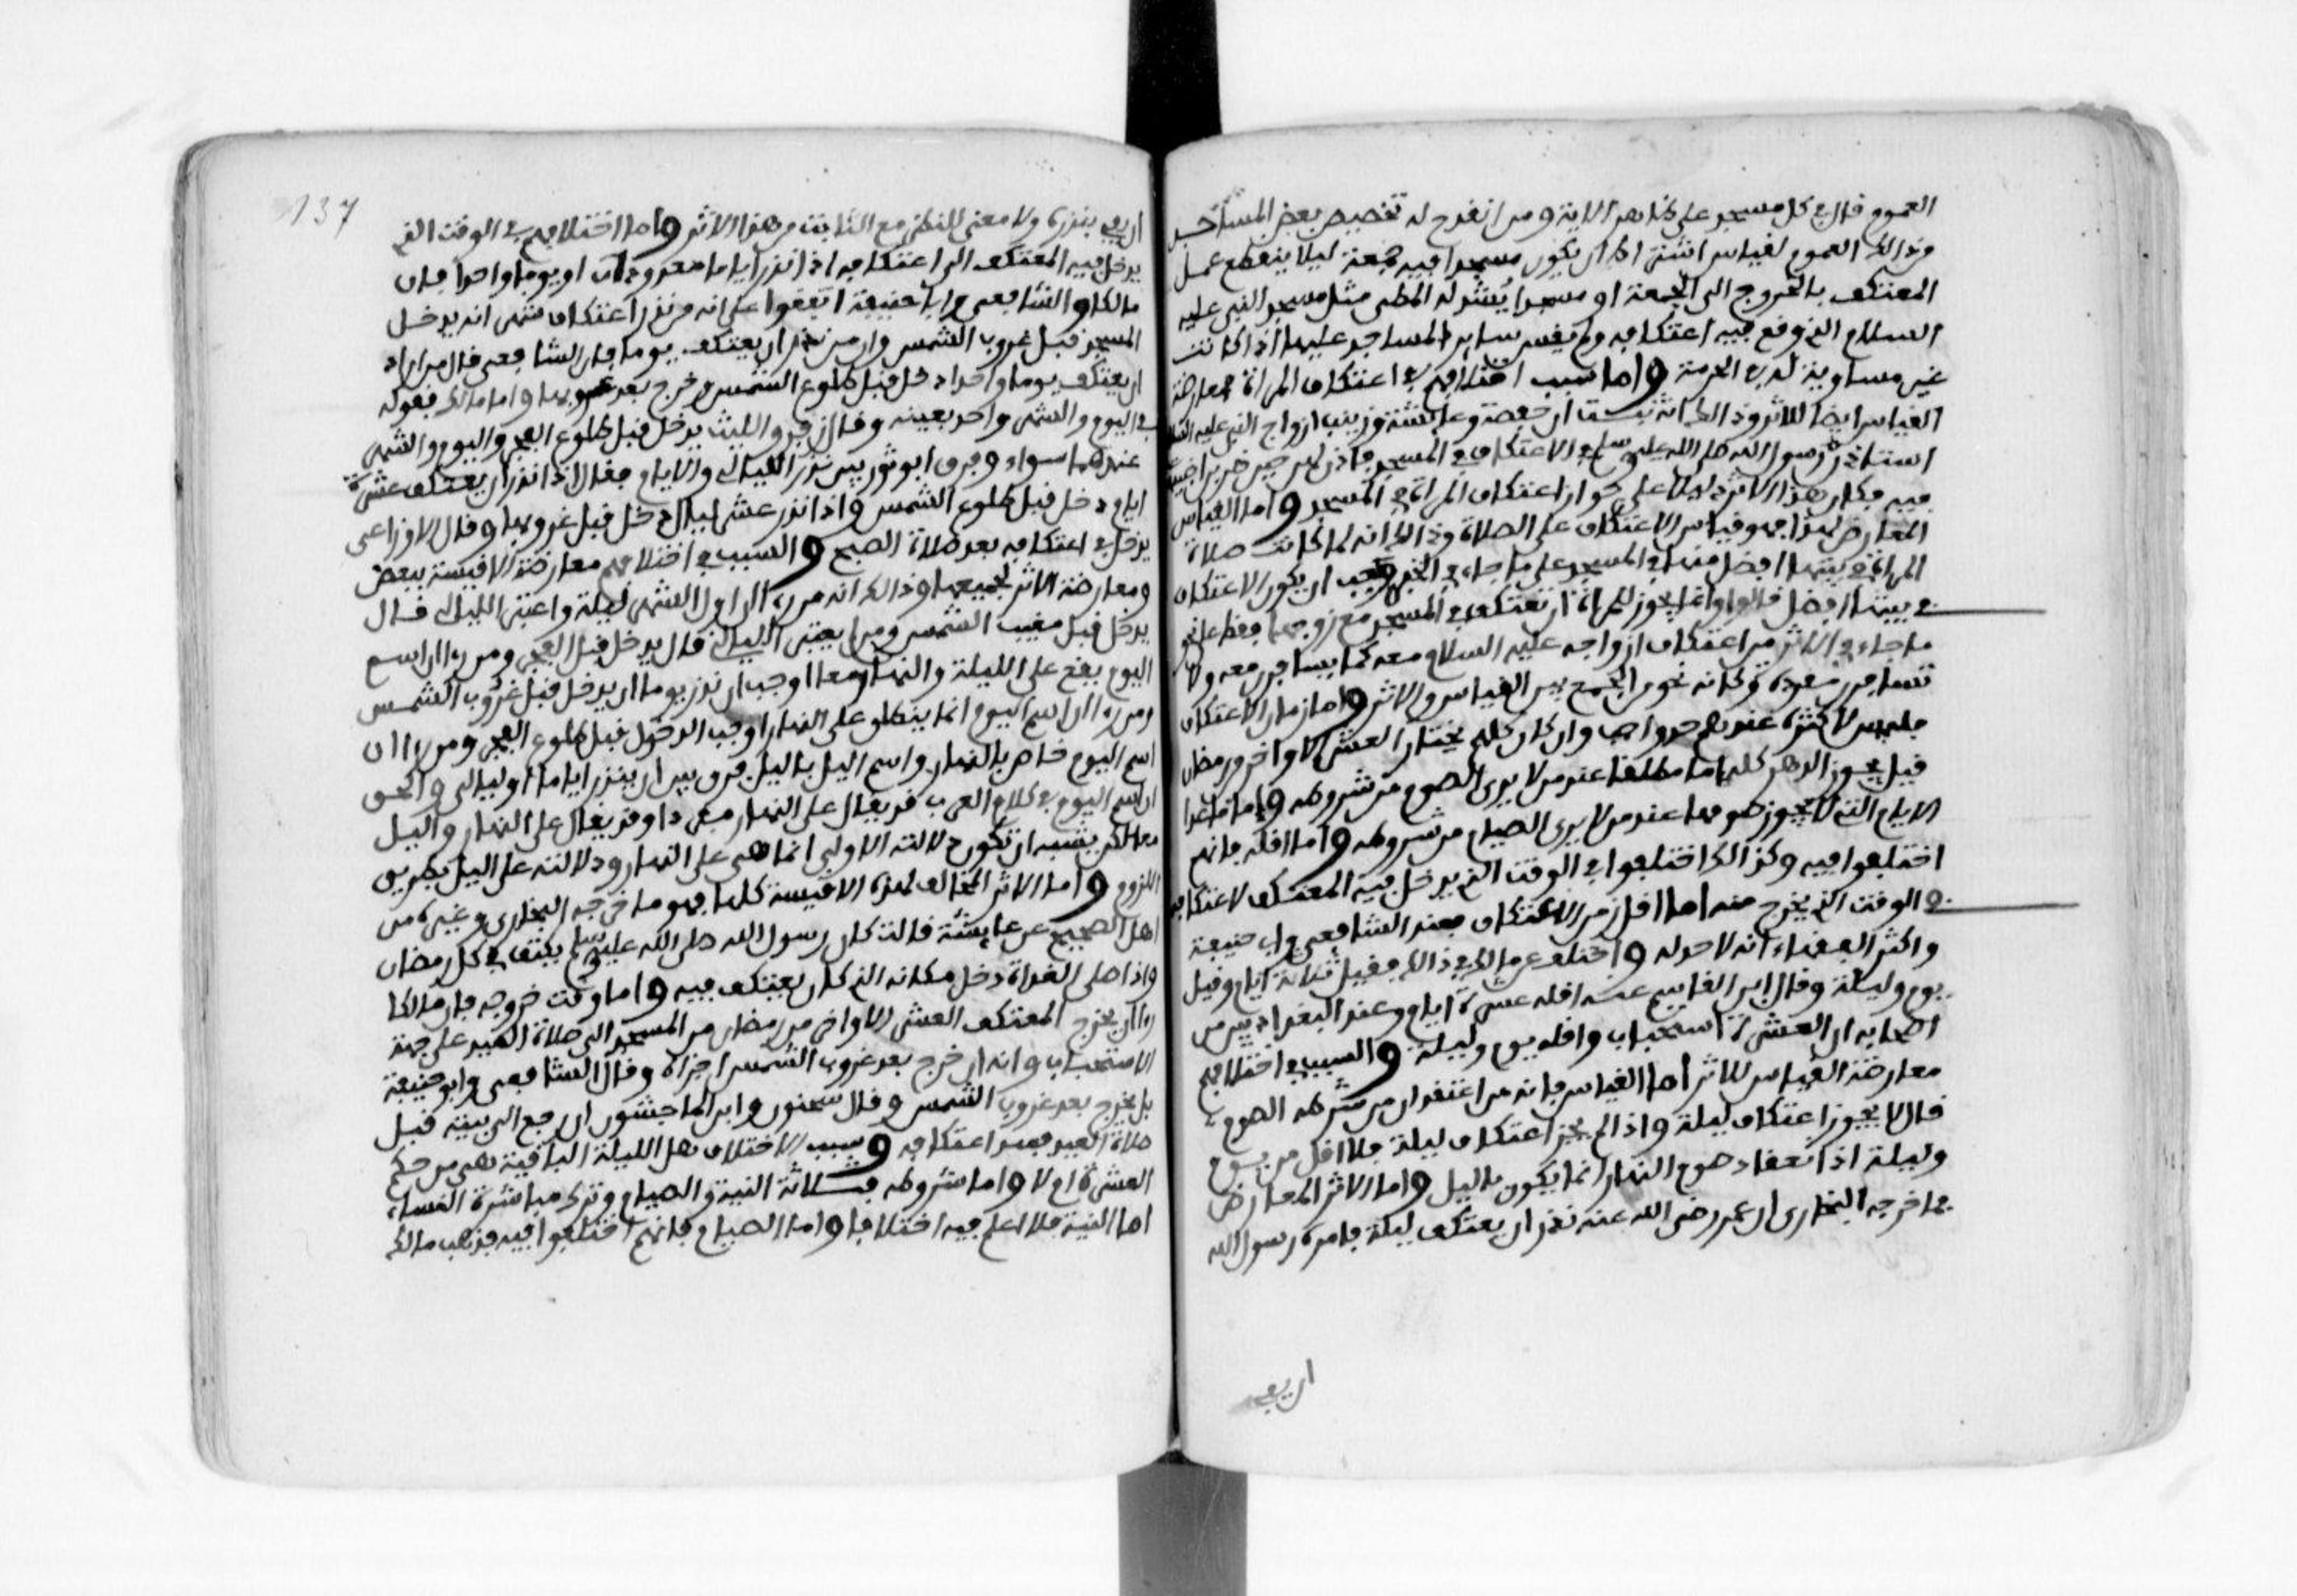 العموم قال في كل مسجد على ظاهر الاية ومن انقدح له تخصيص بعض المساجد
من ذالك العموم لقياس اشترط ان يكون مسجدا فيه جمعة ليلا ينقطع عمل
المعتكف بالخروج الى الجمعة او مسجدا يُشد له المطي مثل مسجد النبي عليه
السلام الذي وقع فيه اعتكافه ولم يقس ساير المساجد عليها اذا كانت
غير مساوية له في الحرمة واما سبب اختلافهم في اعتكاف المراة فمعارضة
القياس ايضا للاثر وذالك انه ثبت ان حفصة وعايشة وزينب ازواج النبي عليه السلام
استاذن رسول الله صلى الله عليه وسلم في الاعتكاف في المسجد فاذن لهن حين ضربن اخبيتهن
فيه فكان هذا الاثر دليلا على جواز اعتكاف المراة في المسجد واما القياس
المعارض لهذا فهو قياس الاعتكاف على الصلاة وذالك انه لما كانت صلاة
المراة في بيتها افضل منها في المسجد على ما جاء في الخبر وجب ان يكون الاعتكاف
في بيتها افضل قالوا وانما يجوز للمراة ان تعتكف في المسجد مع زوجها فقط على نحو
ما جاء في الاثر من اعتكاف ازواجه عليه السلام معه كما يسافرن معه ولا
تسافرن مفردة وكانه نحو من الجمع بين القياس والاثر واما زمان الاعتكاف
فليس لاكثره عندهم حد واجب وان كان كلهم يختار العشر الاواخر من رمضان
قيل يجوز الدهر كله اما مطلقا عند من لا يرى الصوم من شروطه واما ما عدا
الايام التي لا يجوز صومها عند من لا يرى الصيام من شروطه واما اقله فانهم
اختلفوا فيه وكذالك اختلفوا في الوقت الذي يدخل فيه المعتكف لاعتكافه
وفي الوقت الذي يخرج منه اما اقل زمن الاعتكاف فعند الشافعي وابي حنيفة
واكثر الفقهاء انه لا حد له واختلف عن مالك في ذالك فقيل ثلاثة ايام وقيل
يوم وليلة وقال ابن القاسم عنه اقله عشرة ايام وعند البغداديين من
اصحابه ان العشرة استحباب واقله يوم وليلة والسبب في اختلافهم
معارضة القياس للاثر اما القياس فانه من اعتقد ان من شرطه الصوم
قال لا يجوز اعتكاف ليلة واذا لم يجز اعتكاف ليلة فلا اقل من يوم
وليلة اذ انعقاد صوم النهار انما يكون بالليل واما الاثر المعارض
فما خرجه البخاري ان عمر رضي الله عنه نذر ان يعتكف ليلة فامره رسول الله
ان يفي
137
ان يفي بنذره ولا معنى للنظر مع الثابت من هذا الاثر واما اختلافهم في الوقت الذي
يدخل فيه المعتكف الى اعتكافه اذا نذر اياما معدودات او يوما واحدا فان
مالكا والشافعي وابا حنيفة اتفقوا على انه من نذر اعتكاف شهر انه يدخل
المسجد قبل غروب الشمس وان من نذر ان يعتكف يوما فان الشافعي قال من اراد
ان يعتكف يوما واحدا دخل قبل طلوع الشمس وخرج بعد غروبها واما مالك فقوله
في اليوم والشهر واحد بعينه وقال زفر والليث يدخل قبل طلوع الفجر واليوم والشهر
عندهما سواء وفرق ابو ثور بين نذر الليالي والايام فقال اذا نذر ان يعتكف عشرة
ايام دخل قبل طلوع الشمس واذا نذر عشر ليال دخل قبل غروبها وقال الاوزاعي
يدخل في اعتكافه بعد صلاة الصبح والسبب في اختلافهم معارضة الاقيسة ببعض
ومعارضة الاثر لجميعها وذالك انه من راا ان اول الشهر ليلة واعتبر الليالي قال
يدخل قبل مغيب الشمس ومن لم يعتبر الليالي قال يدخل قبل الفجر ومن راا ان اسم
اليوم يقع على الليلة والنهار معا اوجب ان نذر يوما ان يدخل قبل غروب الشمس
ومن راا ان اسم اليوم انما ينطلق على النهار اوجب الدخول قبل طلوع الفجر ومن راا ان
اسم اليوم خاص بالنهار واسم الليل بالليل فرق بين ان ينذر اياما او ليالي والحق
ان اسم اليوم في كلام العرب قد يقال على النهار مفردا وقد يقال على النهار والليل
معا لكن يشبه ان تكون دلالته الاولى انما هي على النهار ودلالته على الليل بطريق
اللزوم واما الاثر المخالف لهذه الاقيسة كلها فهو ما خرجه البخاري وغيره من
اهل الصحيح عن عايشة قالت كان رسول الله صلى الله عليه وسلم يعتكف في كل رمضان
واذا صلى الغداة دخل مكانه الذي كان يعتكف فيه واما وقت خروجه فان مالكا
راا ان يخرج المعتكف العشر الاواخر من رمضان من المسجد الى صلاة العيد على جهة
الاستحباب وانه ان خرج بعد غروب الشمس اجزاه وقال الشافعي وابو حنيفة
بل يخرج بعد غروب الشمس وقال سحنون وابن الماجشون ان رجع الى بيته قبل
صلاة العيد فسد اعتكافه وسبب الاختلاف هل الليلة الباقية هي من حكم
العشرة ام لا واما شروطه فثلاثة النية والصيام وترك مباشرة النساء
اما النية فلا اعلم فيه اختلافا واما الصيام فانهم اختلفوا فيه فذهب مالك